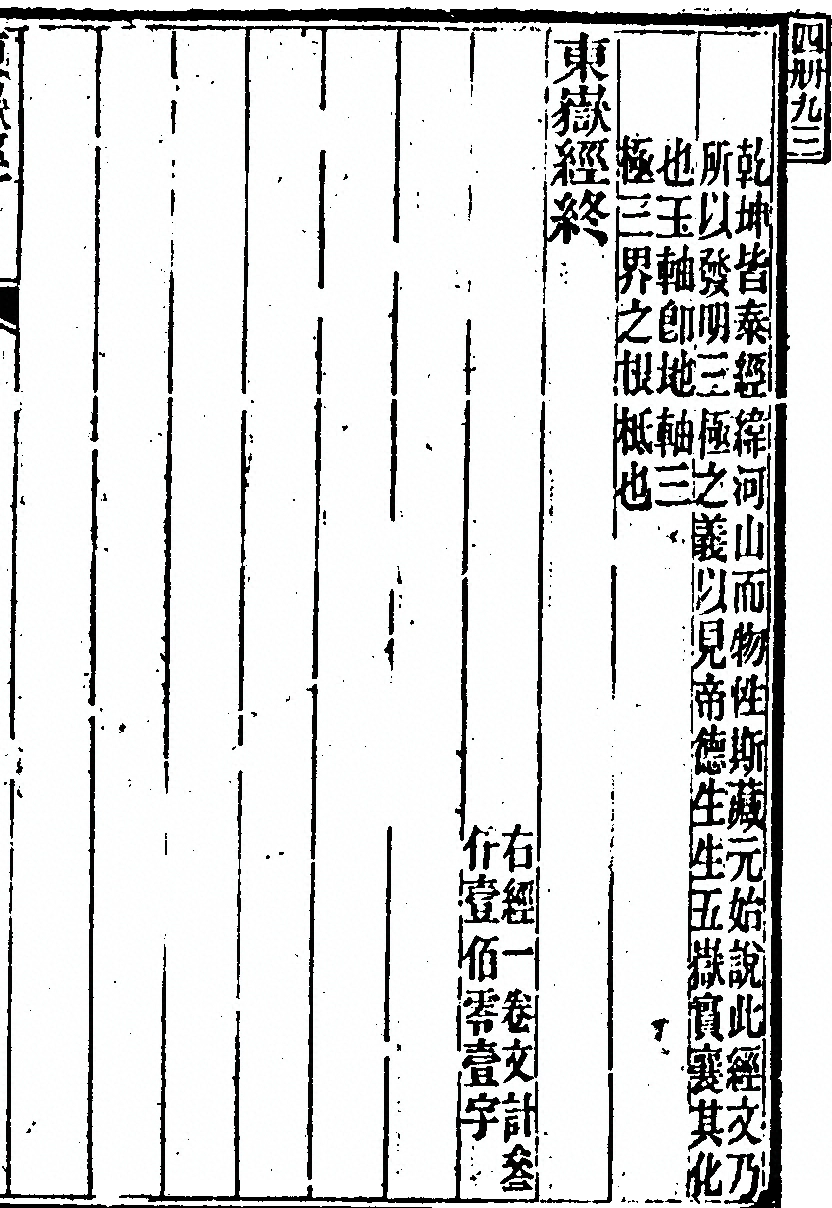 四册九三
乾坤皆泰經緯河山而物性斯藏元始說此經文乃
所以發明三極之義以見帝德生生五嶽實襄其化
也玉軸卽地軸三
極三界之根柢也
東嶽經終
右經一卷文計叄
仟壹佰零壹字